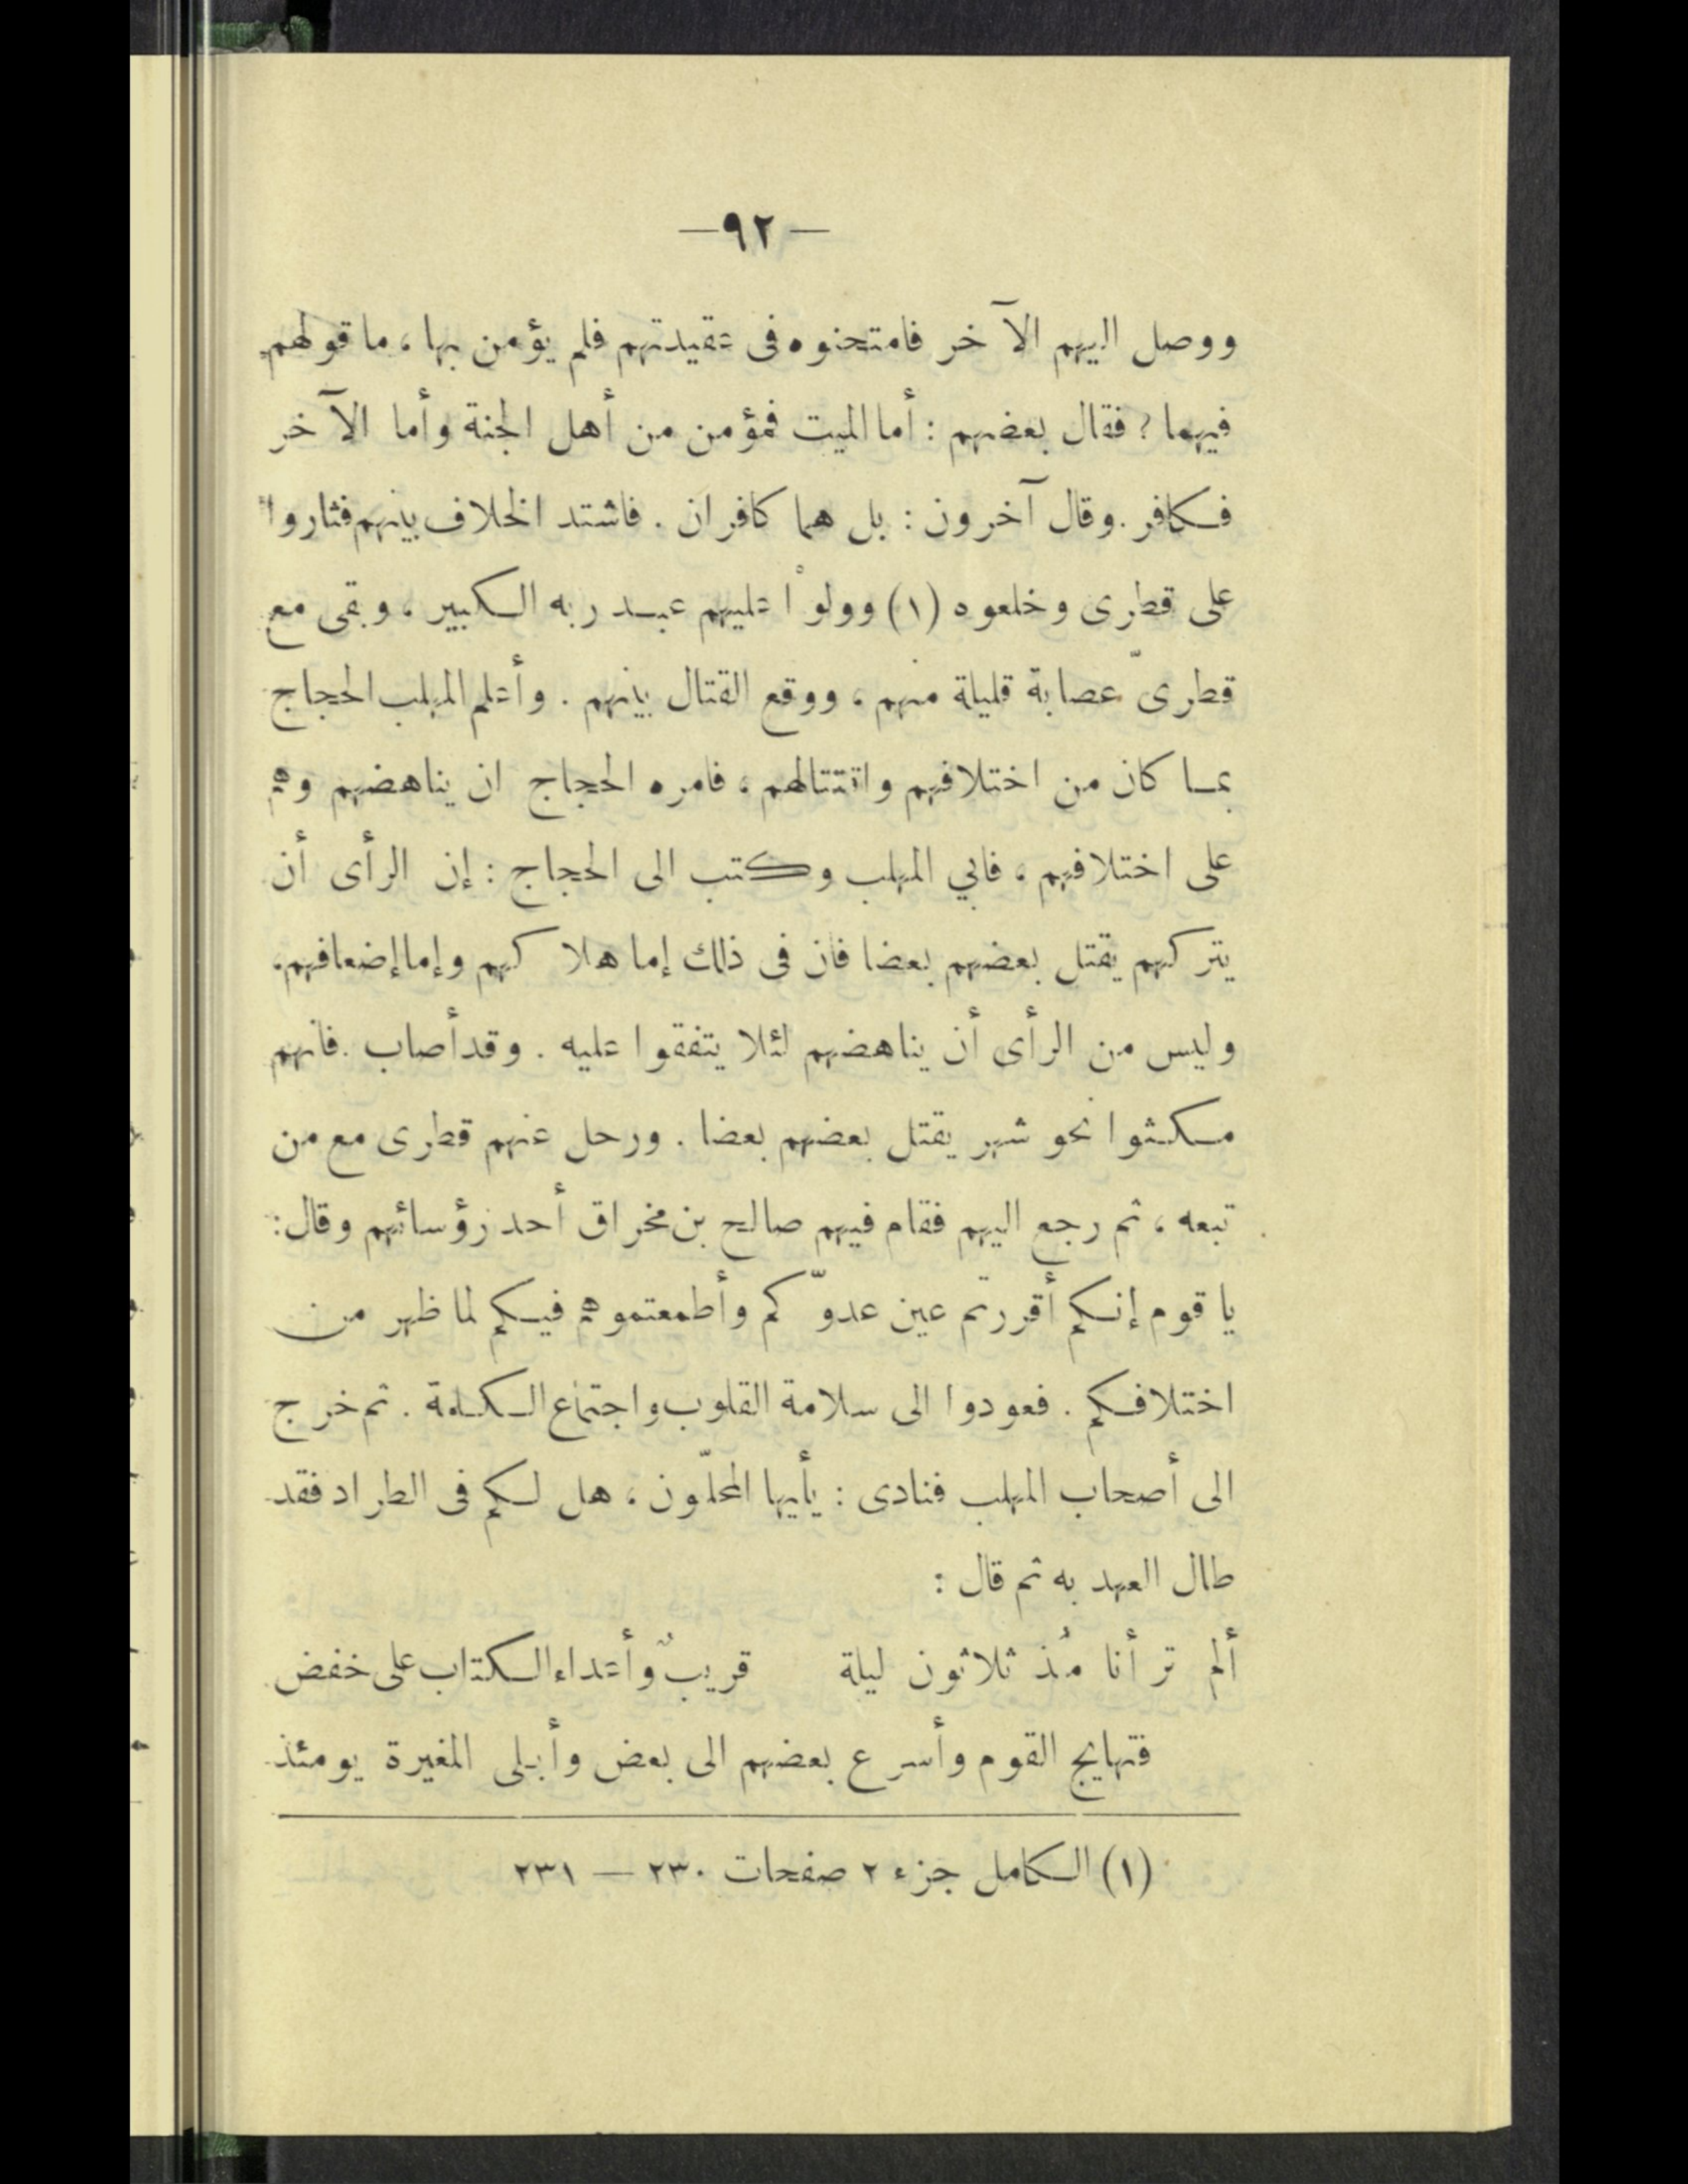 —٩٢—
ووصل اليهم الآخر فامتحنوه فى عقيدتهم فلم يؤمن بها، ما قولهم
فيهما؟ فقال بعضهم: أما الميت فمؤمن من أهل الجنة وأما الآخر
فكافر. وقال آخرون: بل هما كافران. فاشتد الخلاف بينهم فثاروا
على قطرى وخلعوه (١) وولوا عليهم عبد ربه الكبير، وبقى مع
قطرىّ عصابة قليلة منهم، ووقع القتال بينهم. وأعلم المهلب الحجاج
بما كان من اختلافهم واقتتالهم، فامره الحجاج ان يناهضهم وهم
على اختلافهم، فابي المهلب وكتب الى الحجاج: إن الرأى أن
يتركهم يقتل بعضهم بعضا فان فى ذلك إما هلاكهم وإما إضعافهم،
وليس من الرأى أن يناهضهم لئلا يتفقوا عليه. وقد أصاب. فانهم
مكثوا نحو شهر يقتل بعضهم بعضا. ورحل عنهم قطرى مع من
تبعه، ثم رجع اليهم فقام فيهم صالح بن مخراق أحد رؤسائهم وقال:
يا قوم إنكم أقررتم عين عدوّكم وأطمعتموهم فيكم لما ظهر من
اختلافكم. فعودوا الى سلامة القلوب واجتماع الكلمة. ثم خرج
الى أصحاب المهلب فنادى: يأيها المحلّون، هل لكم فى الطراد فقد
طال العهد به ثم قال:
ألم تر أنا مُذ ثلاثون ليلة قريبٌ وأعداء الكتاب على خفض
فتهايج القوم وأسرع بعضهم الى بعض وأبلى المغيرة يومئذ
(١) الكامل جزء ٢ صفحات ٢٣٠ — ٢٣١